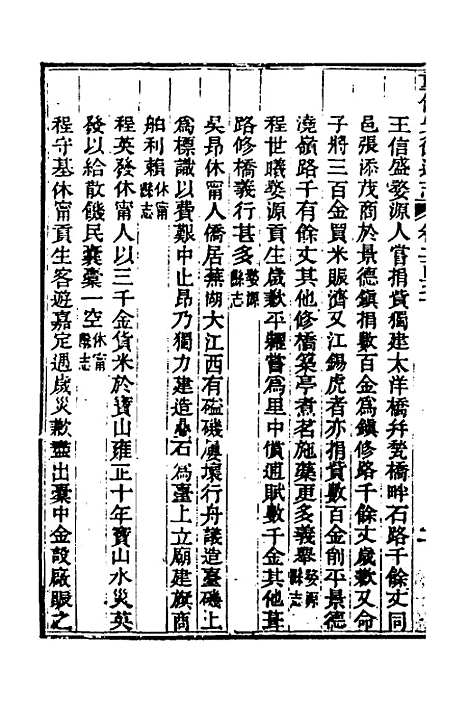 王信盛婺源人嘗捐貲獨建太洋橋幷甃橋畔石路千餘丈同
邑張添茂商於景德鎮捐數百金爲鎮修路千餘丈歲歉又命
子將三百金買米賑濟又江錫虎者亦捐貲數百金削平景德
澆嶺路千有餘丈其他修橋築亭煮茗施藥更多義舉婺源縣志
程世曦婺源貢生歲歉平糶嘗爲里中償逋賦數千金其他葺
路修橋義行甚多婺源縣志
吳昂休甯人僑居蕪湖大江西有礚磯奧壞行舟議造臺磯上
爲標識以費艱中止昂乃獨力建造石爲臺上立廟建旗商
舶利賴休甯縣志
程英發休甯人以三千金貨米於寶山雍正十年寶山水災英
發以給散饑民囊橐一空休甯縣志
程守基休甯貢生客遊嘉定遇歲災歉盡出橐中金設廠賑之